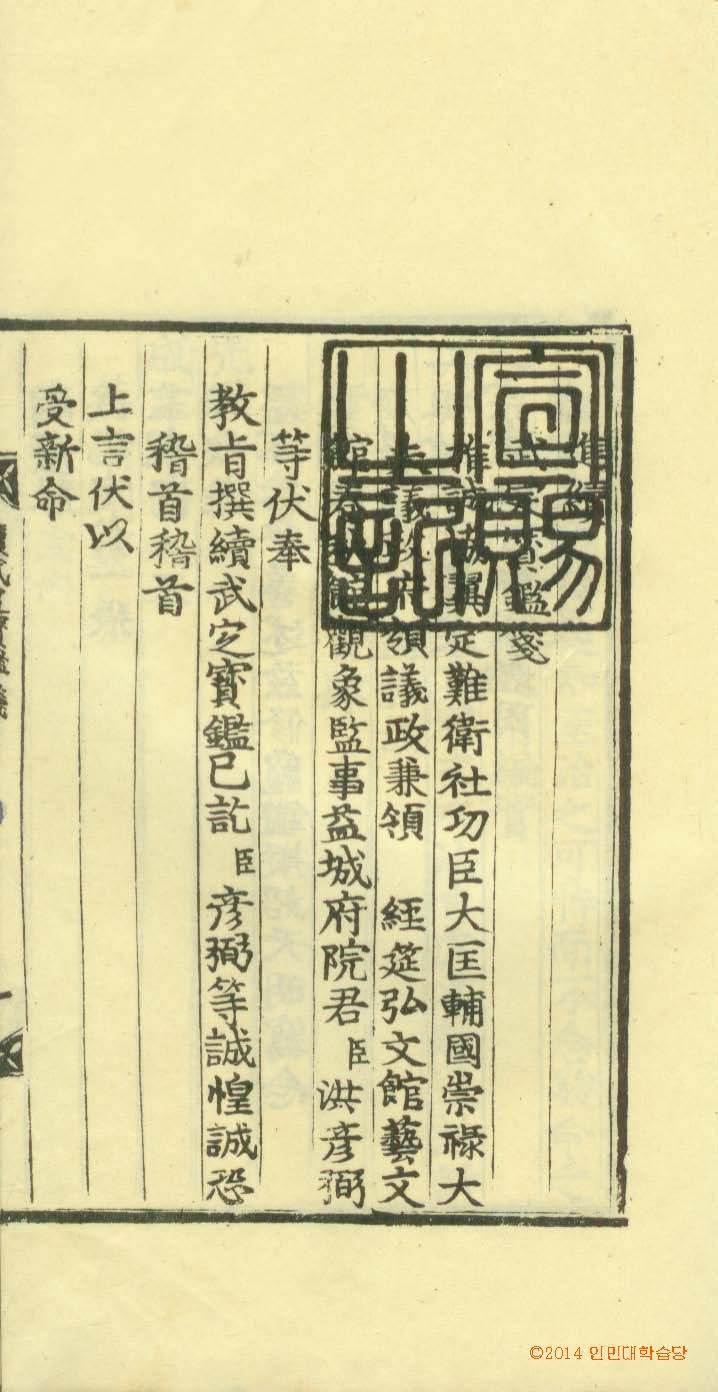 宣賜之記
進續
武定寶鑑箋
推誠協翼定難衛社功臣大匡輔國崇祿大
夫議政府領議政兼領 經筵弘文館藝文
館春秋館觀象監事益城府院君 臣 洪彦弼
等伏奉
敎旨撰續武定寶鑑已訖 臣 彦弼等誠惶誠恐
稽首稽首
上言伏以
受新命
©2014 인민대학습당